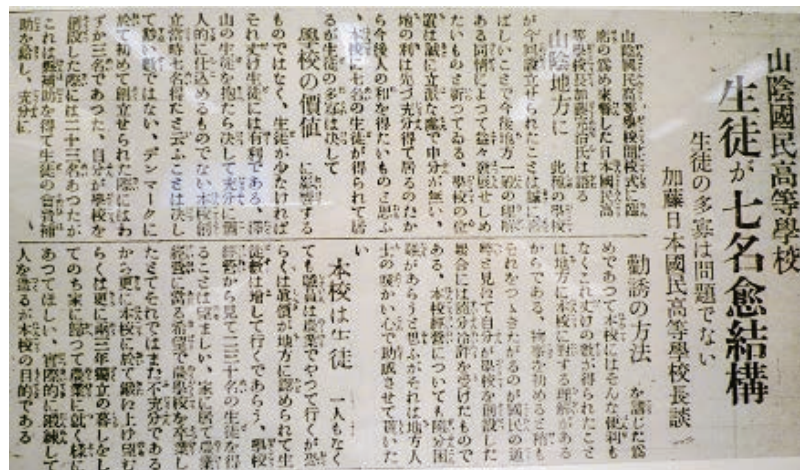 山陰國民高等學校
生徒が七名愈結構
生徒の多寡は問題でない
加藤日本國民高等學校長談
山陰國民高等學校開校式に臨
席の爲め來縣した日本國民高
等學校長加藤完治氏は語る
山陰地方に 此種の學校
が今回設立せられたことは誠に喜
ばしいことで今後地方一般の理解
ある同情によつて益々發展せしめ
たいものと祈つてゐる、學校の位
置は誠に立派な處で申分が無い、
地の利は先づ充分得て居るのだか
ら今後人の和を得たいものと思ふ
、本校に七名の生徒が得られて居
るが生徒の多寡は決して
學校の價値 に影響する
ものではなく、生徒が少なければ
それ丈け生徒には有利である、澤
山の生徒を抱たら決して充分に個
人的に仕込めるものでない本校創
立當時七名得たと云ふことは決し
て尠い數ではない、デンマークに
於て初めて創立せられた際にはわ
ずか三名であつた、自分が學校を
創設した際には二十三名あつたが
これは縣補助を得て生徒の食費補
助を給し、充分に
勸誘の方法 を講じた爲
めであつて本校にはそんな便利も
なくこれ丈けの數が得られたこと
は地方に本校に對する理解がある
からである、物事を初めると稍も
それをつゝきたがるのが國民の通
弊と見ねて自分が學校を創設した
場合には隨分冷評を受けたもので
ある、本校經營についても隨分困
難があらうと思ふがそれは地方人
士の暖かい心で助成させて貰いた
い
本校は生徒 一人もなく
ても職員は農業でやつて行くが恐
らくは眞價が地方に認められて生
徒數は增して行くであらう、學校
經營から見て二三十名の生徒を得
ることは望ましい、家に居て農業
經營に當る希望で農學校を卒業し
たとてそれではまだ不充分である
から更に本校に於て鍛へ上げ望む
らくは更に兩三年獨立の暮しをし
てのち家に歸つて農業に就く樣に
あつてほしい、實際的に鍛練して
人を造るが本校の目的である